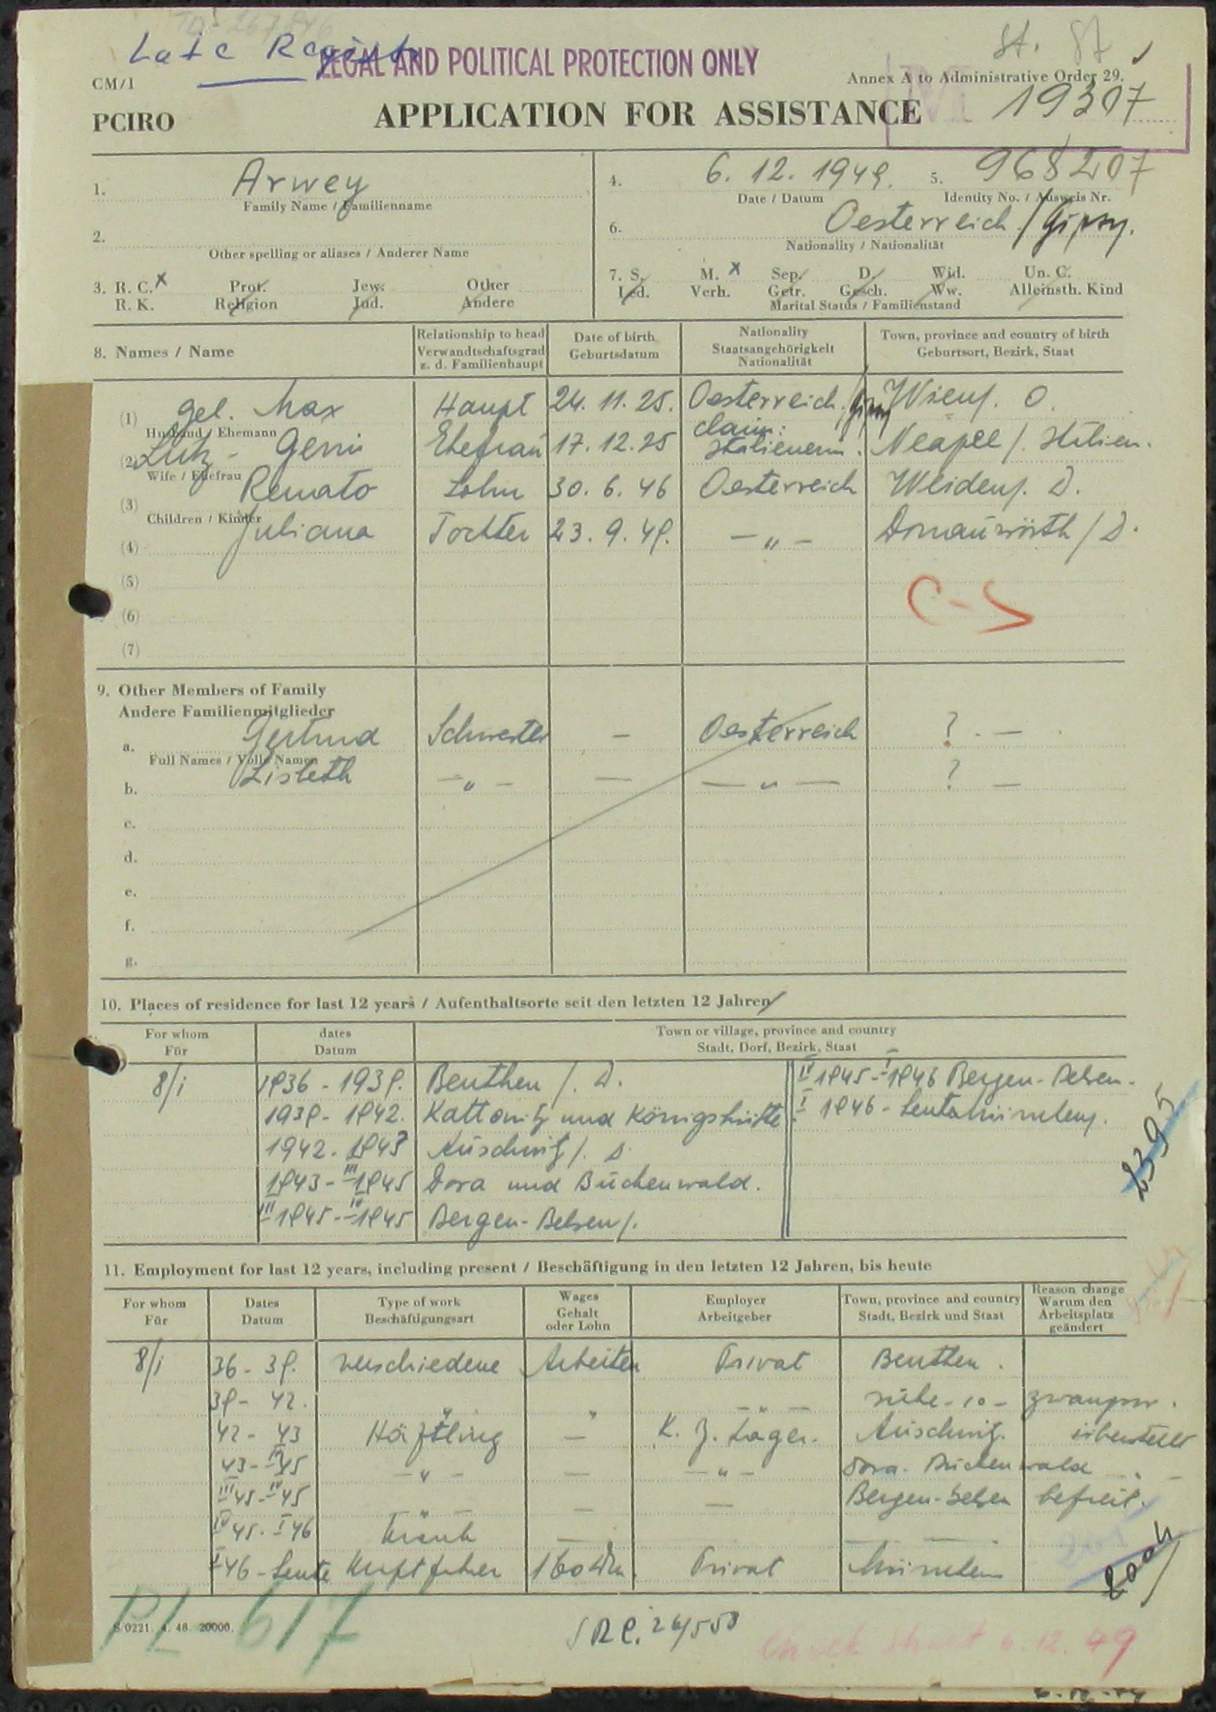 Late Regist
LEGAL AND POLITICAL PROTECTION ONLY
St. St
CM/1
Annex A to Administrative Order 29.
PCIRO
APPLICATION FOR ASSISTANCE
M 19307
1. Arwey
Family Name / Familienname
4. 6. 12. 1949.
Date / Datum
5. 968207
Identity No. / Ausweis Nr.
2.
Other spelling or aliases / Anderer Name
6. Oesterreich / Gipsy.
Nationality / Nationalität
3. R. C. x Prot. Jew. Other
R. K. Religion Jud. Andere
7. S. M. x Sep. D. Wid. Un. C.
Led. Verh. Getr. Gesch. Ww. Alleinsth. Kind
Marital Status / Familienstand
8. Names / Name
Relationship to head
Verwandtschaftsgrad
z. d. Familienhaupt
Date of birth
Geburtsdatum
Nationality
Staatsangehörigkeit
Nationalität
Town, province and country of birth
Geburtsort, Bezirk, Staat
(1) Max Haupt 24. 11. 25. Oesterreich / Gipsy Wien/. O.
Husband / Ehemann
gel.
claim:
(2) Lutz - Ehefrau 17. 12. 25 Italienerin. Neapel /. Italien.
Wife / Ehefrau
(3) Renato Sohn 30. 6. 46 Oesterreich Weiden/. D.
Children / Kinder
(4) Juliana Tochter 23. 9. 49. — „ — Donauwörth / D.
(5)
(6)
(7)
9. Other Members of Family
Andere Familienmitglieder
a. Gertrud Schwester — Oesterreich ? . —
Full Names / Volle Namen
b. Lisbeth — „ — — — „ — ? —
c.
d.
e.
f.
g.
10. Places of residence for last 12 years / Aufenthaltsorte seit den letzten 12 Jahren
For whom
Für
dates
Datum
Town or village, province and country
Stadt, Dorf, Bezirk, Staat
8/i 1936 - 1939. Beuthen /. D.
IV 1945 - I 1946 Bergen-Belsen.
1939 - 1942. Kattowitz und Königshütte
I 1946 - heute München/.
1942 - 1943 Auschwitz /. D.
1943 - III 1945 Dora und Buchenwald.
III 1945 - IV 1945 Bergen-Belsen/.
2395
11. Employment for last 12 years, including present / Beschäftigung in den letzten 12 Jahren, bis heute
For whom
Für
Dates
Datum
Type of work
Beschäftigungsart
Wages
Gehalt
oder Lohn
Employer
Arbeitgeber
Town, province and country
Stadt, Bezirk und Staat
Reason change
Warum den
Arbeitsplatz
geändert
8/i 36 - 39. verschiedene Arbeiten Privat Beuthen.
39 - 42. „ „ — „ — siehe -10- zwangsw.
42 - 43 Häftling — K. Z. Lager. Auschwitz. überstellt
43 - III 45 — „ — — — „ — Dora. Buchenwald „ —
III 45 - IV 45 — — Bergen-Belsen befreit.
IV 45 - I 46 Krank — — —
I 46 - heute Kraftfahrer 160 DM. Privat München
S/0221. 4. 48. 20000.
PL-617
Check Sheet 6. 12. 49